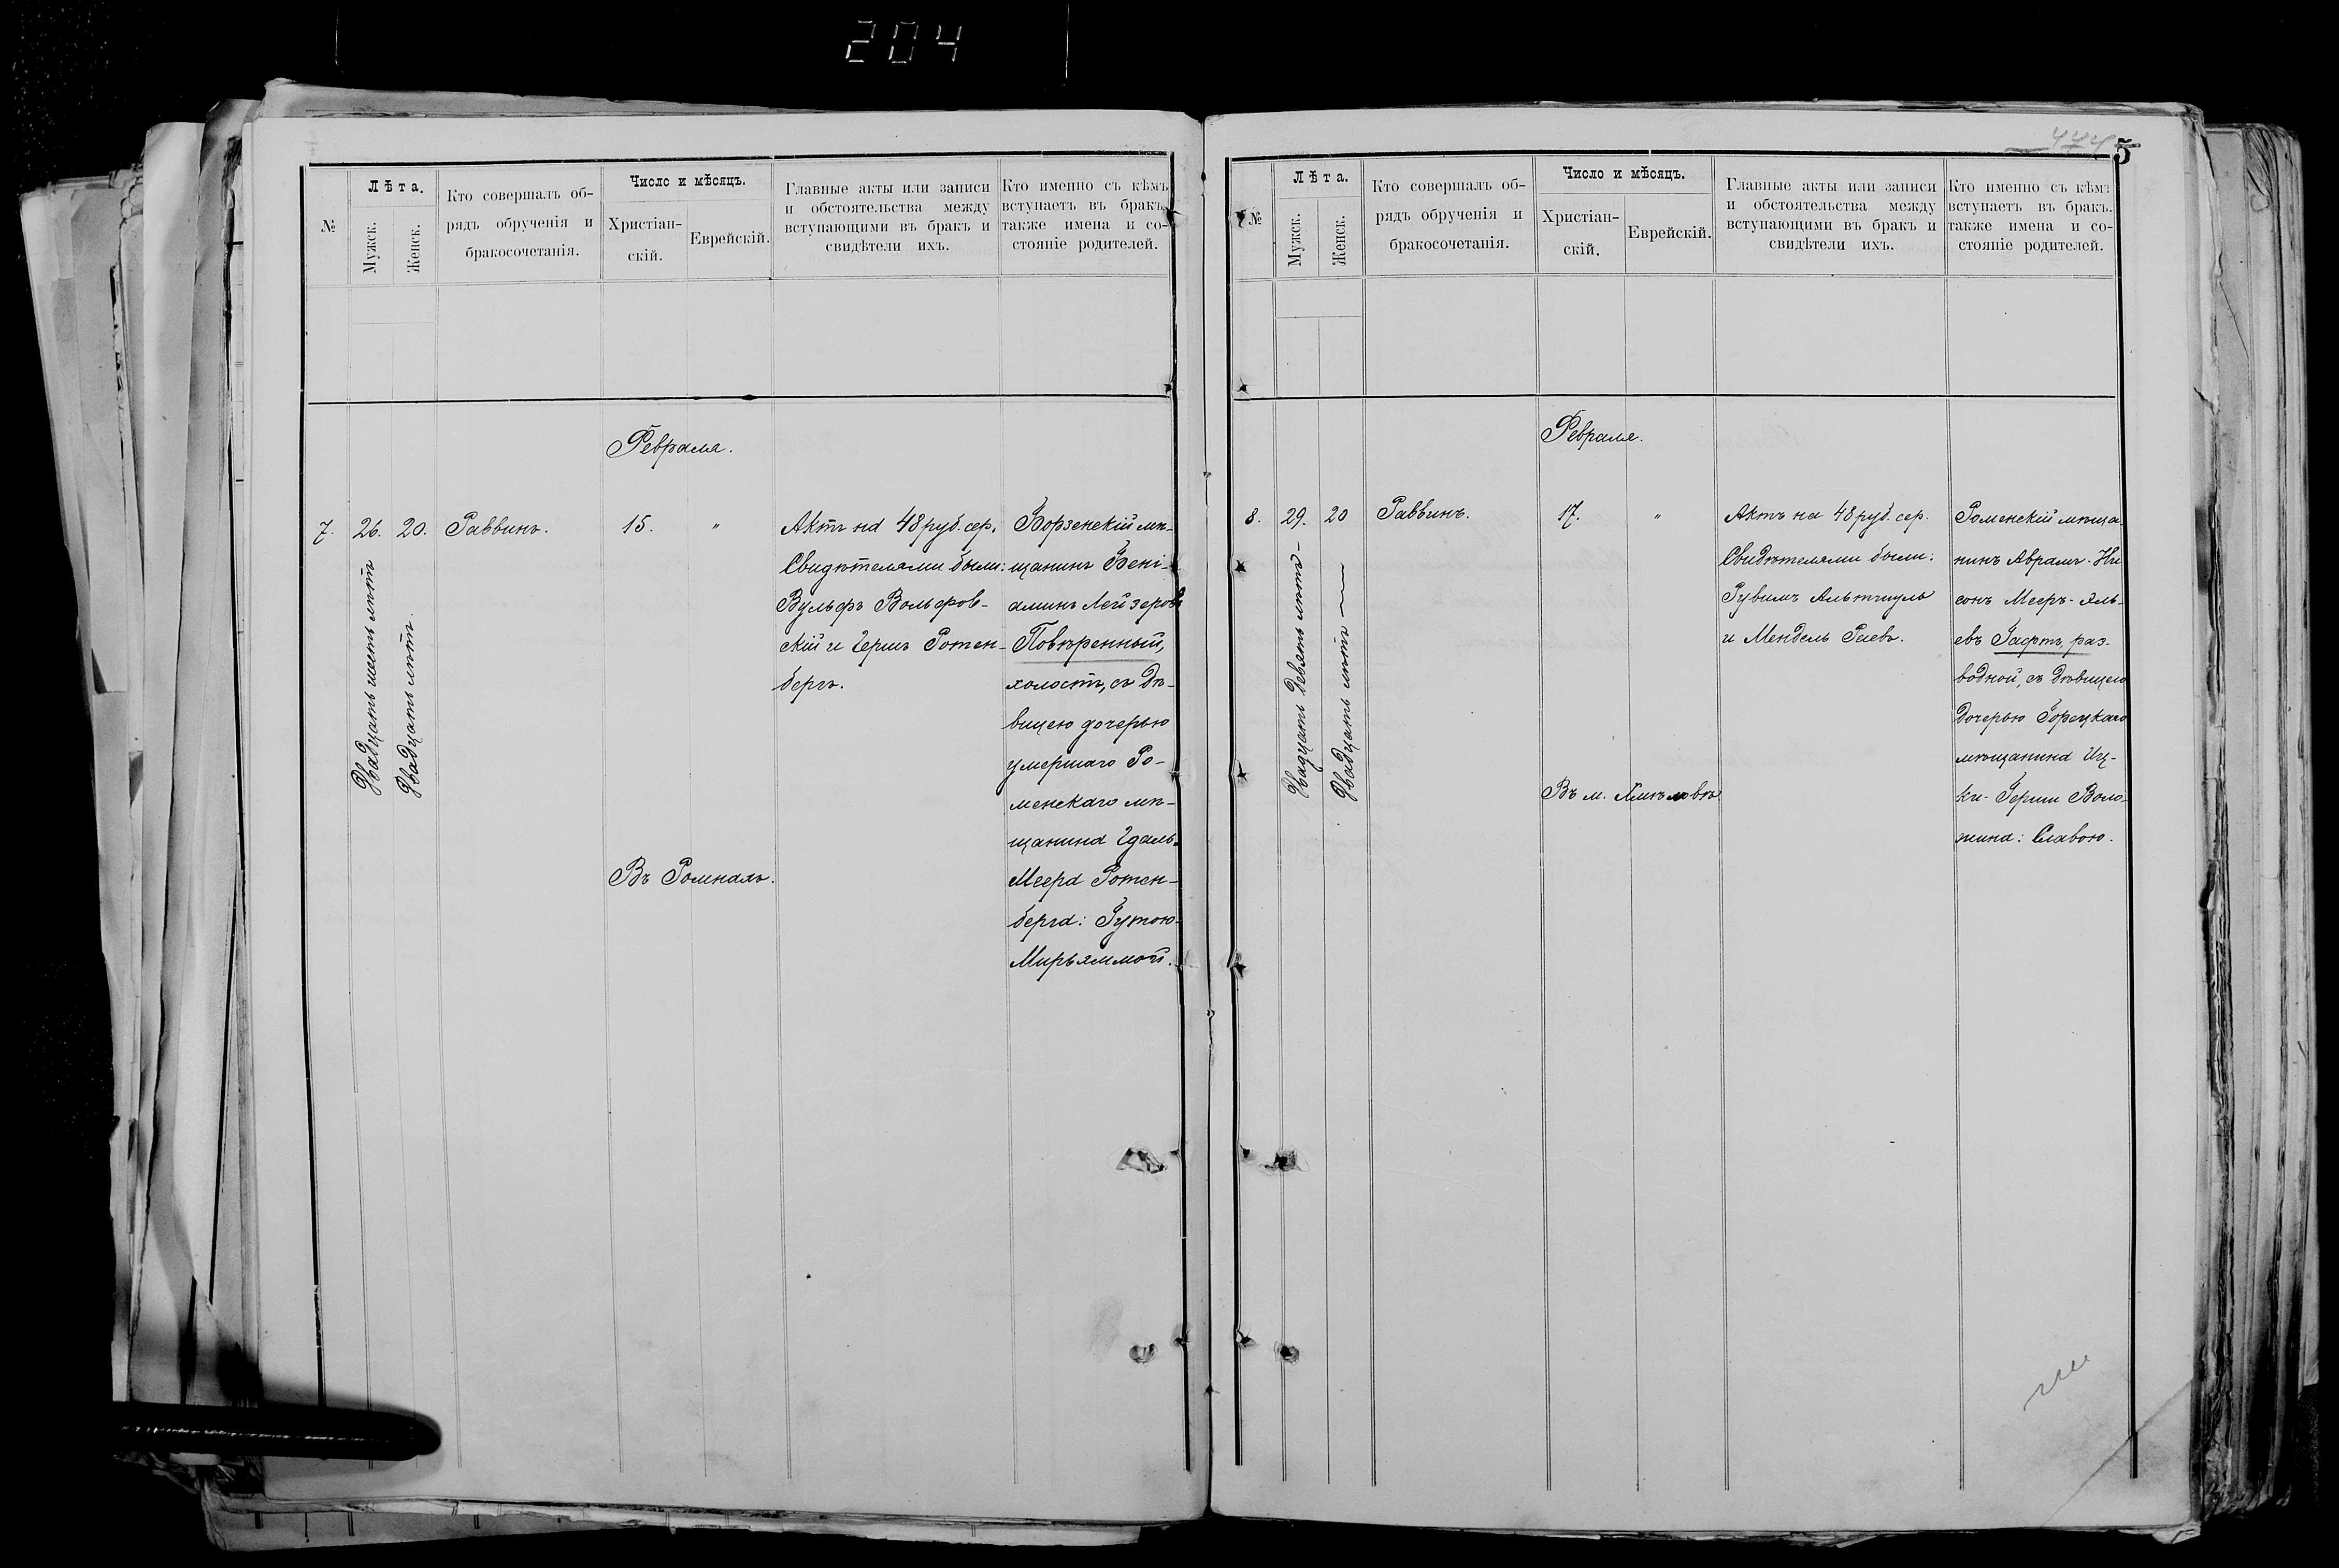 204
№
Лѣта.
Мужск.
Женск.
Кто совершалъ об-
рядъ обрученія и
бракосочетанія.
Число и мѣсяцъ.
Христіан-
скій.
Еврейскій.
Главные акты или записи
и обстоятельства между
вступающими въ бракъ и
свидѣтели ихъ.
Кто именно съ кѣмъ
вступаетъ въ бракъ,
также имена и со-
стояніе родителей.
Февраля.
7.
26.
Двадцать шесть лѣтъ
20.
Двадцать лѣтъ.
Раввинъ.
15.
"
Въ Ромнахъ.
Актъ на 48 руб. сер.
Свидѣтелями были:
Вульфъ Вольфов-
скій и Гершъ Ротен-
бергъ.
Борзенскій мѣ-
щанинъ Бені-
аминъ Лейзеровъ
Повѣренный,
холостъ, съ дѣ-
вицею дочерью
умершаго Ро-
менскаго мѣ-
щанина Гдаль-
Меера Ротен-
берга: Гутою-
Мирьяммой.
5
№
Лѣта.
Мужск.
Женск.
Кто совершалъ об-
рядъ обрученія и
бракосочетанія.
Число и мѣсяцъ.
Христіан-
скій.
Еврейскій.
Главные акты или записи
и обстоятельства между
вступающими въ бракъ и
свидѣтели ихъ.
Кто именно съ кѣмъ
вступаетъ въ бракъ,
также имена и со-
стояніе родителей.
Февраля.
8.
29.
Двадцать девять лѣтъ-
20
Двадцать лѣтъ
Раввинъ.
17.
"
Въ м.
Актъ на 48 руб. сер.
Свидѣтелями были:
Рувимъ Альтшуль
и Мендель Раевъ.
Роменскій мѣща-
нинъ Абрамъ-Ни
сонъ Мееръ-Эль-
евъ раз-
водной, съ дѣвицею
дочерью Горецкаго
мѣщанина Иц-
ки-Герши Воло-
жина: Славою.